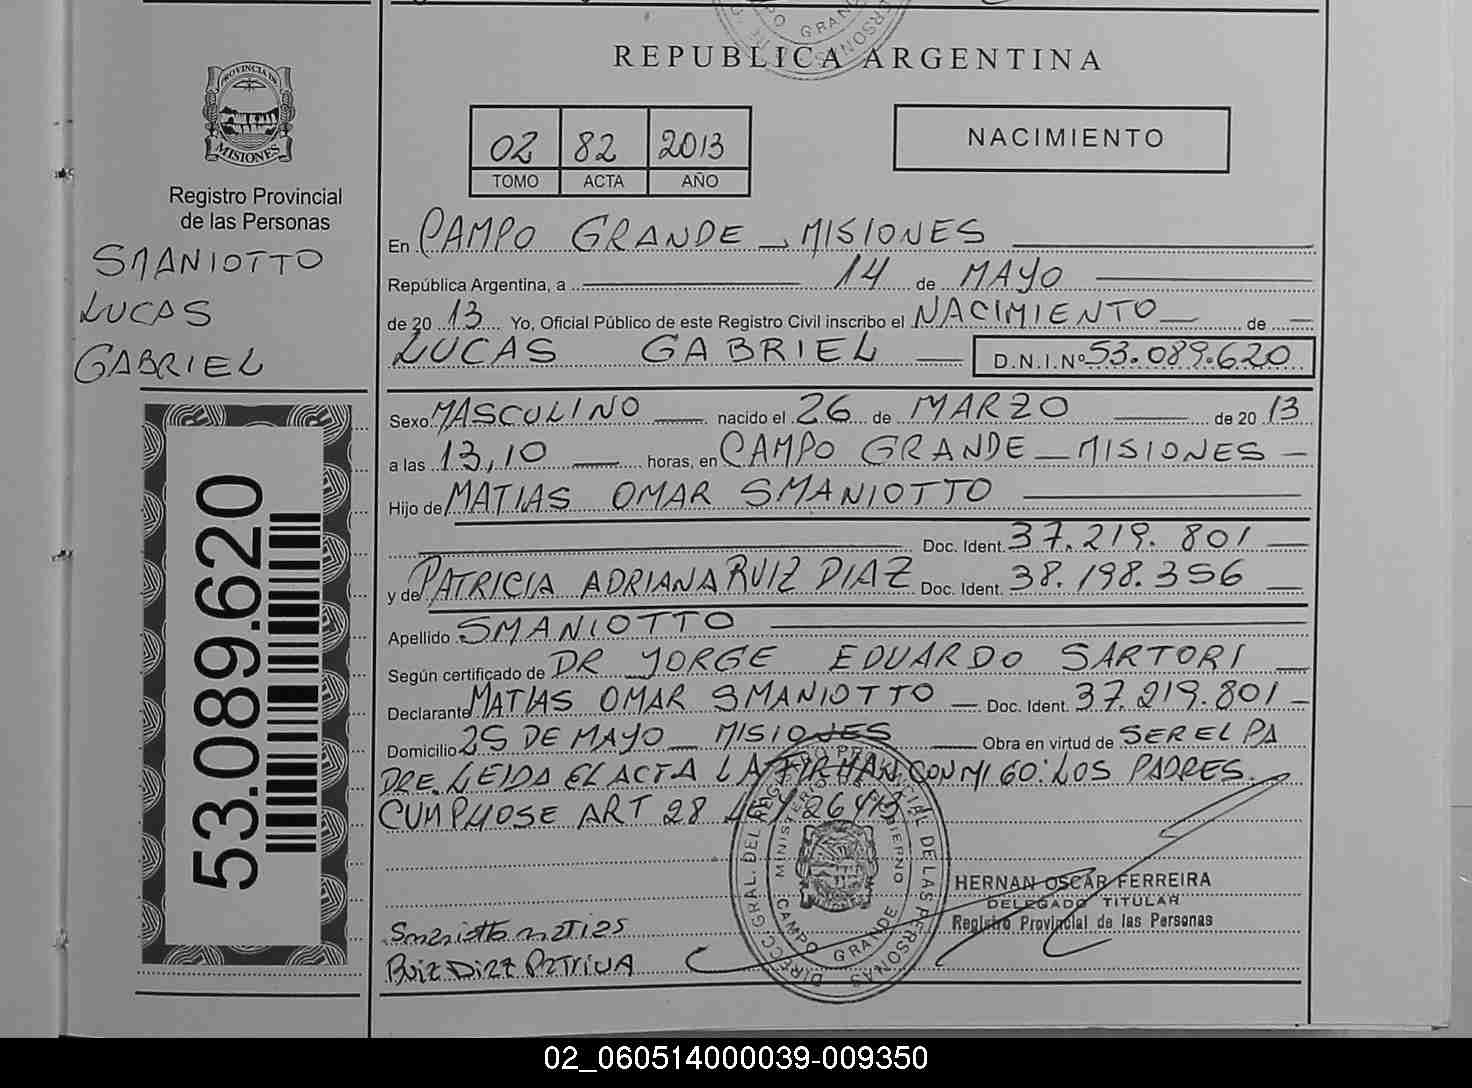 REPUBLICA ARGENTINA
PROVINCIA DE
MISIONES
Registro Provincial
de las Personas
SMANIOTTO
LUCAS
GABRIEL
53.089.620
02 82 2013
TOMO ACTA AÑO
NACIMIENTO
En CAMPO GRANDE - MISIONES
República Argentina, a 14 de MAYO
de 20 13 Yo, Oficial Público de este Registro Civil inscribo el NACIMIENTO de
LUCAS GABRIEL D.N.I.Nº 53.089.620
Sexo MASCULINO nacido el 26 de MARZO de 20 13
a las 13,10 horas, en CAMPO GRANDE - MISIONES
Hijo de MATIAS OMAR SMANIOTTO
Doc. Ident. 37.219.801
y de PATRICIA ADRIANA RUIZ DIAZ Doc. Ident. 38.198.356
Apellido SMANIOTTO
Según certificado de DR JORGE EDUARDO SARTORI
Declarante MATIAS OMAR SMANIOTTO Doc. Ident. 37.219.801
Domicilio 25 DE MAYO - MISIONES Obra en virtud de SER EL PA
DRE. LEIDA EL ACTA LA FIRMAN CONMIGO: LOS PADRES.
CUMPLIOSE ART 28 LEY 26413
DIRECC. GRAL. DEL REGISTRO PROVINCIAL DE LAS PERSONAS
MINISTERIO DE GOBIERNO
CAMPO GRANDE
HERNAN OSCAR FERREIRA
DELEGADO TITULAR
Registro Provincial de las Personas
Smaniotto matias
Ruiz Diaz Patricia
02_060514000039-009350